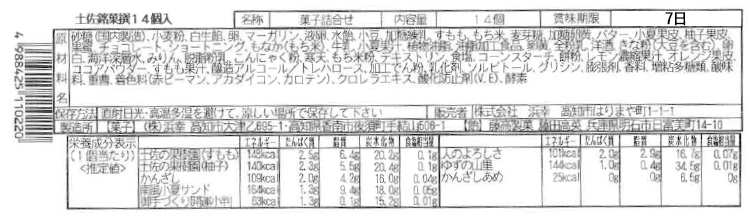 土佐銘菓撰14個入
名称 菓子詰合せ 内容量 14個 賞味期限 7日
原材料名
砂糖(国内製造)、小麦粉、白生餡、卵、マーガリン、液卵、水飴、小豆、加糖練乳、すもも、もち米、麦芽糖、加糖卵黄、バター、小夏果皮、柚子果皮、
果糖、チョコレート、ショートニング、もなか(もち米)、牛乳、小夏果汁、植物油脂、油脂加工食品、卵黄、全粉乳、洋酒、きな粉(大豆を含む)、卵
白、海洋深層水、みりん、脱脂粉乳、こんにゃく粉、寒天、もち米粉、デキストリン、食塩、コーンスターチ、餅粉、レモン濃縮果汁、オレンジ果皮、
ココアパウダー、すもも果汁、醸造アルコール/トレハロース、加工でん粉、乳化剤、ソルビトール、グリシン、膨張剤、香料、増粘多糖類、酸味
料、重曹、着色料(赤ピーマン、アカダイコン、カロテン)、クロレラエキス、酸化防止剤(V.E)、酵素
保存方法 直射日光・高温多湿を避けて、涼しい場所で保存して下さい 販売者 株式会社 浜幸 高知市はりまや町1-1-1
製造所 【菓子】(株)浜幸 高知市大津乙695-1・高知県香南市夜須町手結山606-1 【飴】 藤高製菓 藤田高英 兵庫県明石市日富美町14-10
栄養成分表示
(1個当たり)
<推定値>
エネルギー たんぱく質 脂質 炭水化物 食塩相当量
土佐の果樹園(すもも) 148kcal 2.5g 6.4g 20.2g 0.1g
土佐の果樹園(柚子) 140kcal 2.3g 5.5g 20.4g 0.1g
かんざし 109kcal 2.0g 4.2g 16.0g 0.04g
南国小夏サンド 164kcal 1.3g 9.4g 18.0g 0.05g
御手づくり 小判 63kcal 1.3g 0.1g 15.2g 0.01g
エネルギー たんぱく質 脂質 炭水化物 食塩相当量
人のよろしさ 101kcal 2.0g 2.9g 16.7g 0.07g
ゆずの山里 144kcal 1.0g 0.4g 34.5g 0.01g
かんざしあめ 25kcal 0g 0g 6.5g 0g
4988425110220